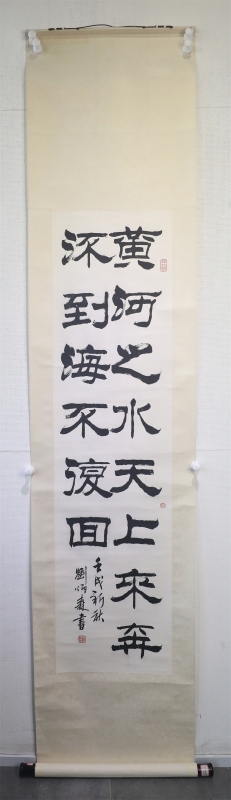 黄河之水天上来奔
流到海不復回
壬戌新秋
劉炳森書